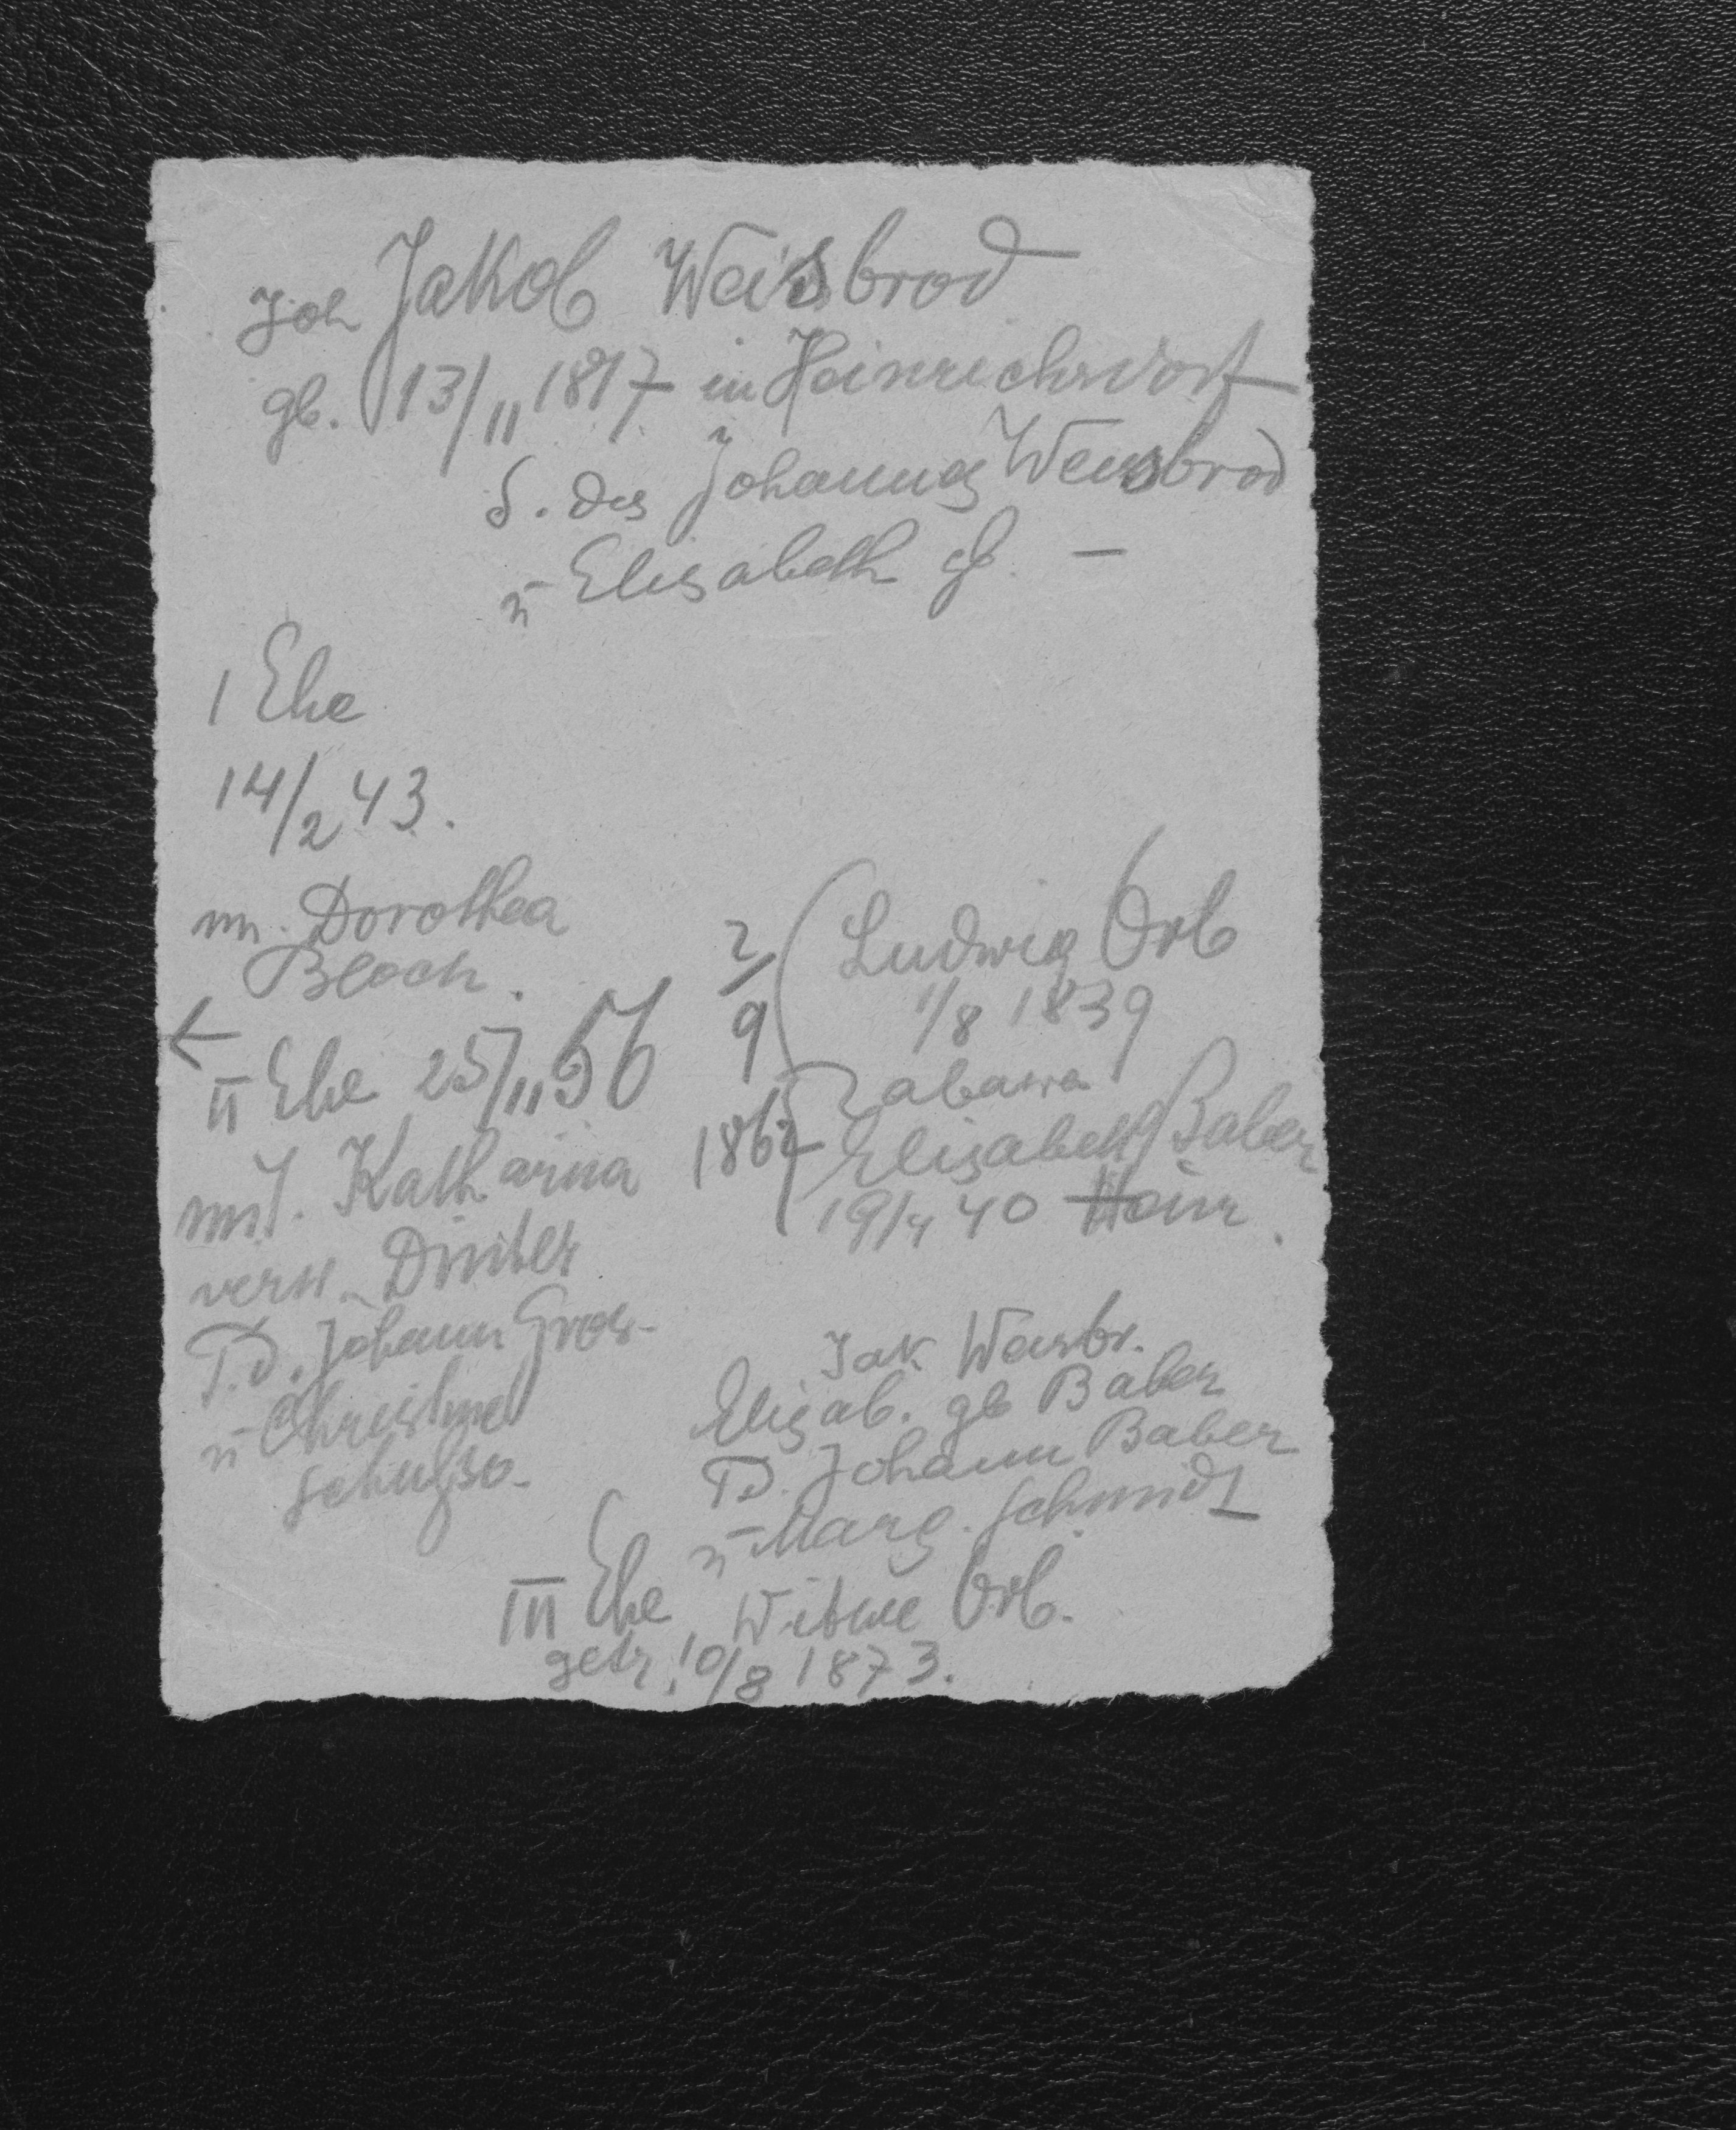 Joh Jakob Weisbrod
gb. 13/11 1817 in Heinrichsdorf
S. des Johannes Weisbrod
u Elisabeth gb. —
I Ehe
14/2 43.
m. Dorothea
Block.
← II Ehe 25/11 56
mit. Katharina
verw. Dinkel
T.d. Johann Gros-
u Christine
Schulz
2/9 1862
Ludwig Orb
1/8 1839
Elisabeth Baber
19/4 40
Jak Weisbr.
Elisab. gb Baber
T.d. Johann Baber
u Marg. Schmidt
III Ehe Witwe Orb.
getr. 10/8 1873.